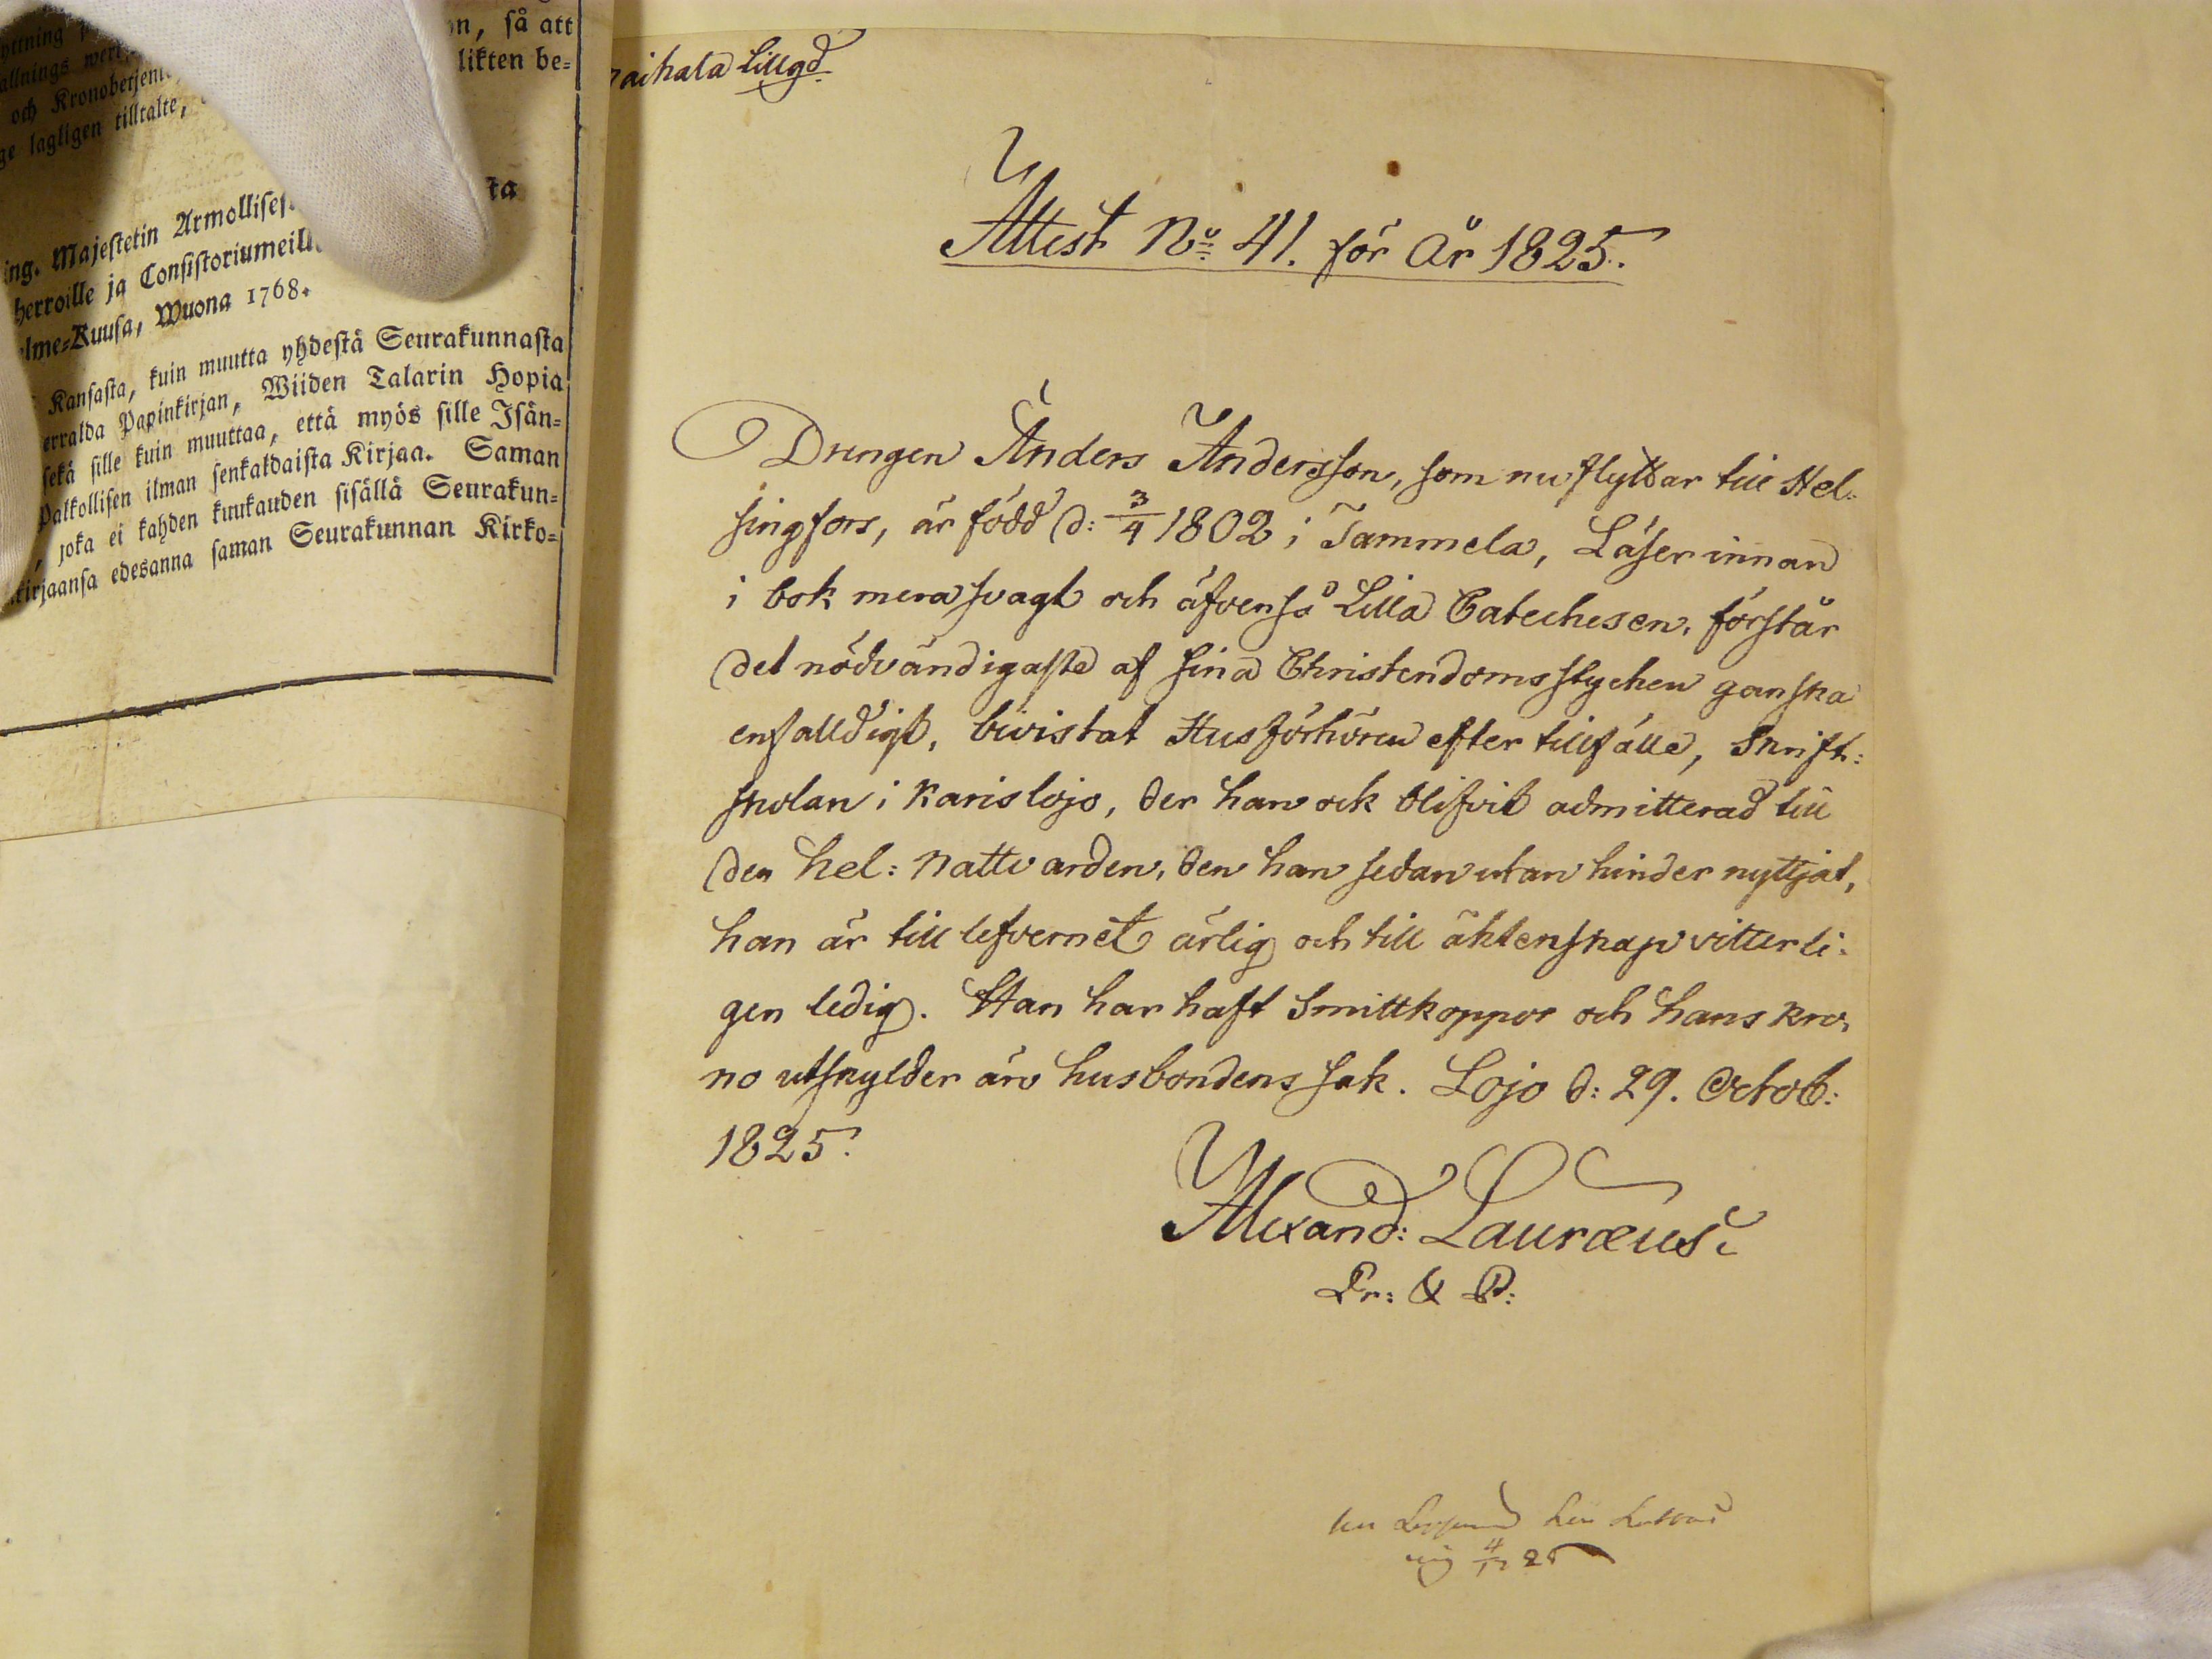 n, så att
likten be=
och Kronobetjent
ge lagligen tilltalte,
ing. Majestetin Armollises
ta
herroille ja Consistoriumeill
lme-Kuusa, Wuona 1768.
Kansasta, kuin muutta yhdestä Seurakunnasta
erralda Papinkirjan, Wiiden Talarin Hopia
sekä sille kuin muuttaa, että myös sille Isän=
Palkollisen ilman senkaldaista Kirjaa. Saman
, joka ei kahden kuukauden sisällä Seurakun=
kirjaansa edesanna saman Seurakunnan Kirko=
aihala Lillgd
Attest No 41. för År 1825.
Drengen Anders Andersson, som nu flyttar till Hel:
singfors, är född d: 3/4 1802 i Tammela, Läser innan
i bok mera svagt och äfvenså Lilla Catechesen, förstår
det nödvändigaste af sina Christendomsstycken ganska
enfalldigt, bivistat Husförhören efter tillfälle, Skrift:
skolan i Karislojo, der han ock blifvit admitterad till
den hel: Nattvarden, den han sedan utan hinder nyttjat,
han är till lefvernet ärlig och till äktenskap vitterli:
gen ledig. Han har haft Smittkoppor och hans kro,
no utskylder äro husbondens sak. Lojo d: 29. Octob:
1825.
Alexand: Lauræus.
Pr: & P:
4/12 25